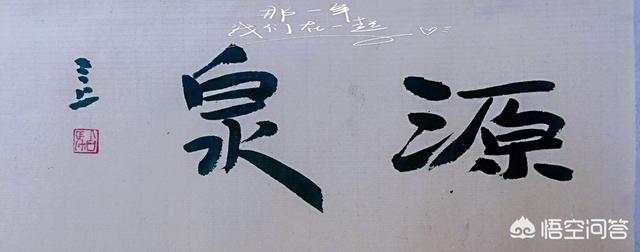 那一年
我们在一起
源泉
悟空问答